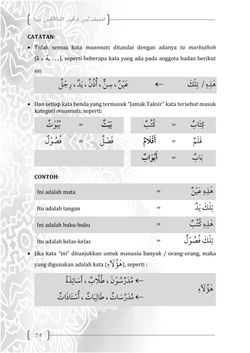 للمبتدئين وغير الناطقين بها
CATATAN:
• Tidak semua kata muannats ditandai dengan adanya ta marbuthoh
(ة ، ـة ...), seperti beberapa kata yang ada pada anggota badan berikut
ini:
هٰذِهِ / تِلْكَ ← عَيْنٌ ، سِنٌّ ، أُذُنٌ ، يَدٌ ، رِجْلٌ
• Dan setiap kata benda yang termasuk "Jamak Taksir" kata tersebut masuk
kategori muannats, seperti:
كِتَابٌ = كُتُبٌ بَيْتٌ = بُيُوْتٌ
قَلَمٌ = أَقْلَامٌ فَصْلٌ = فُصُوْلٌ
بَابٌ = أَبْوَابٌ
CONTOH:
Ini adalah mata = هٰذِهِ عَيْنٌ
Itu adalah tangan = تِلْكَ يَدٌ
Ini adalah buku-buku = هٰذِهِ كُتُبٌ
Itu adalah kelas-kelas = تِلْكَ فُصُوْلٌ
• Jika kata "ini" ditunjukkan untuk manusia banyak / orang-orang, maka
yang digunakan adalah kata (هٰؤُلَاءِ), seperti :
هٰؤُلَاءِ ← مُدَرِّسُوْنَ ، طُلَّابٌ ، أَسَاتِذَةٌ
← مُدَرِّسَاتٌ ، طَالِبَاتٌ ، أُسْتَاذَاتٌ
24